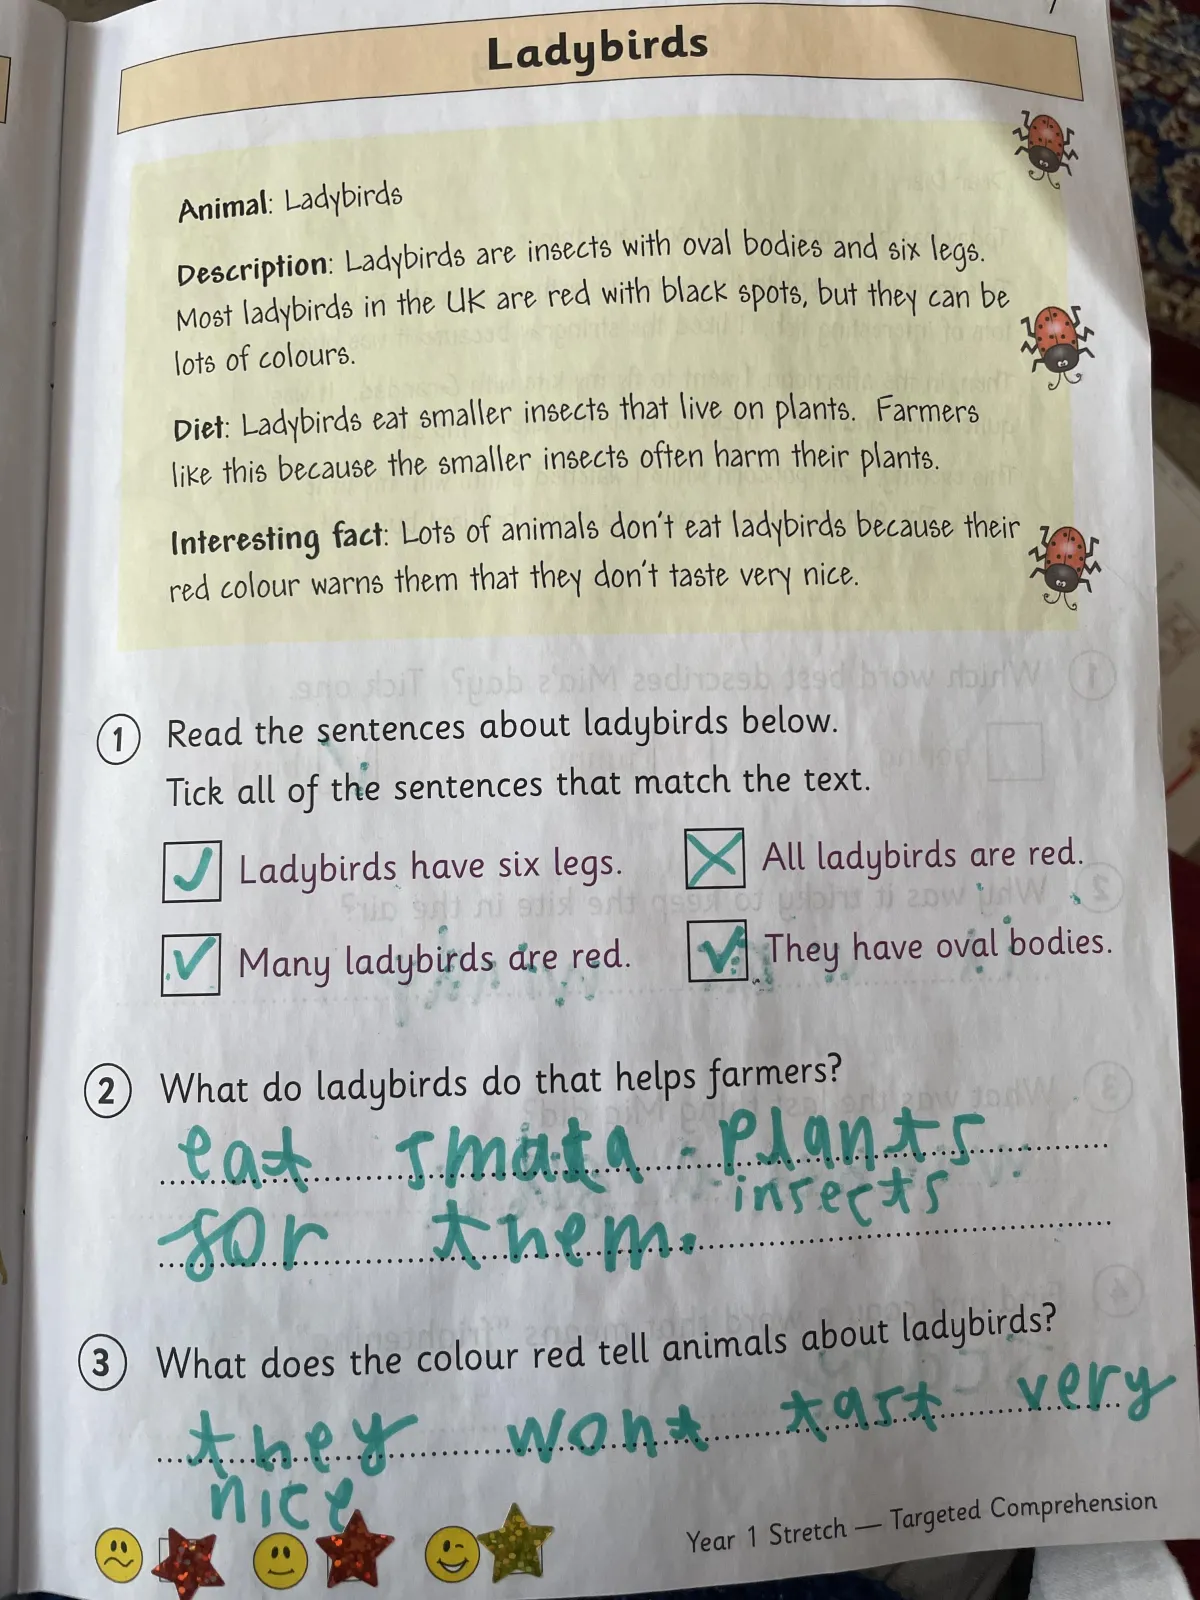 Ladybirds
Animal: Ladybirds
Description: Ladybirds are insects with oval bodies and six legs.
Most ladybirds in the UK are red with black spots, but they can be
lots of colours.
Diet: Ladybirds eat smaller insects that live on plants. Farmers
like this because the smaller insects often harm their plants.
Interesting fact: Lots of animals don't eat ladybirds because their
red colour warns them that they don't taste very nice.
1 Read the sentences about ladybirds below.
Tick all of the sentences that match the text.
Ladybirds have six legs. All ladybirds are red.
Many ladybirds are red. They have oval bodies.
2 What do ladybirds do that helps farmers?
eat plants
insects
for them.
3 What does the colour red tell animals about ladybirds?
they wont tast very
nice
Year 1 Stretch — Targeted Comprehension